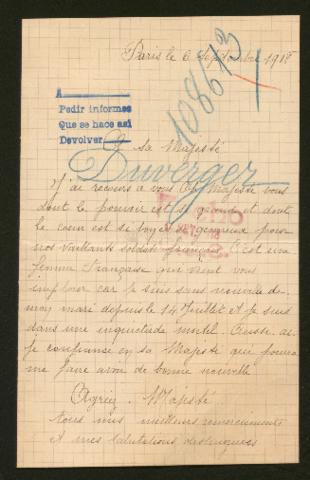 Paris le 6 Septembre 1918
108673
A
Pedir informes
Que se hace así
Devolver
A sa Majesté
Duverger
J'ai recours a vous Oh Majesté vous
dont le pouvoir est si grand et dont
le cœur est si bon et généreux pour
nos vaillants soldats français. C'est une
femme Française qui vient vous
implorer car je suis sans nouvelle de
mon mari depuis le 14 Juillet et je suis
dans une inquiétude mortel
Je confiance en sa Majesté que pourra
me faire avoir de bonne nouvelle
Agréez Majesté
tous mes meilleurs remerciements
et mes salutations distinguées